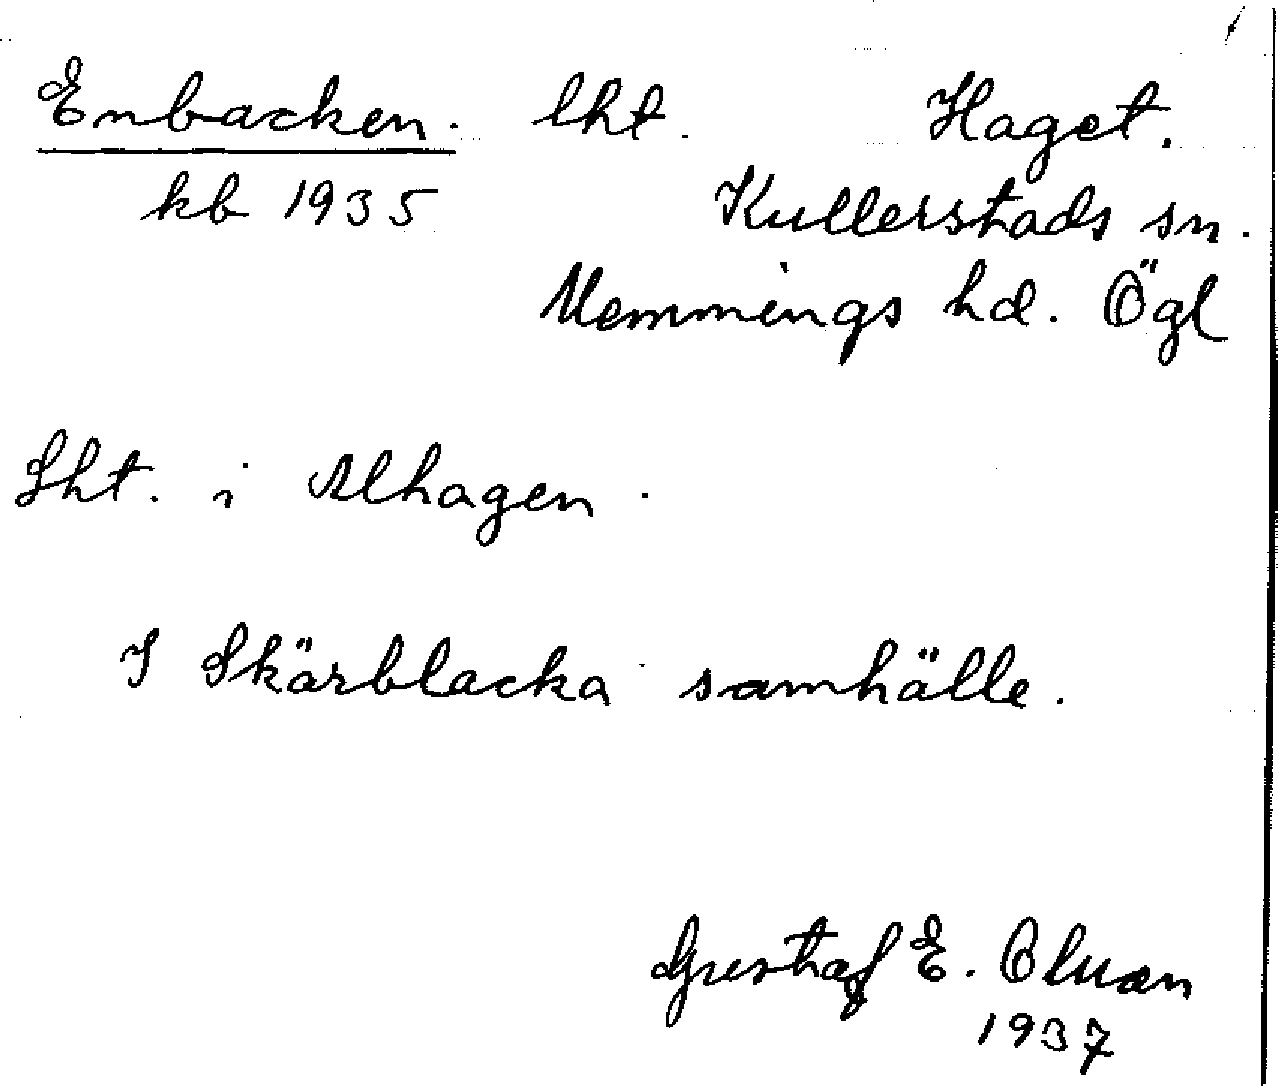 Enbacken. lht. Haget.
kb 1935 Kullerstads sn.
Memmings hd. Ögl
Lht. i Alhagen.
I Skärblacka samhälle.
Gustaf E.
1937